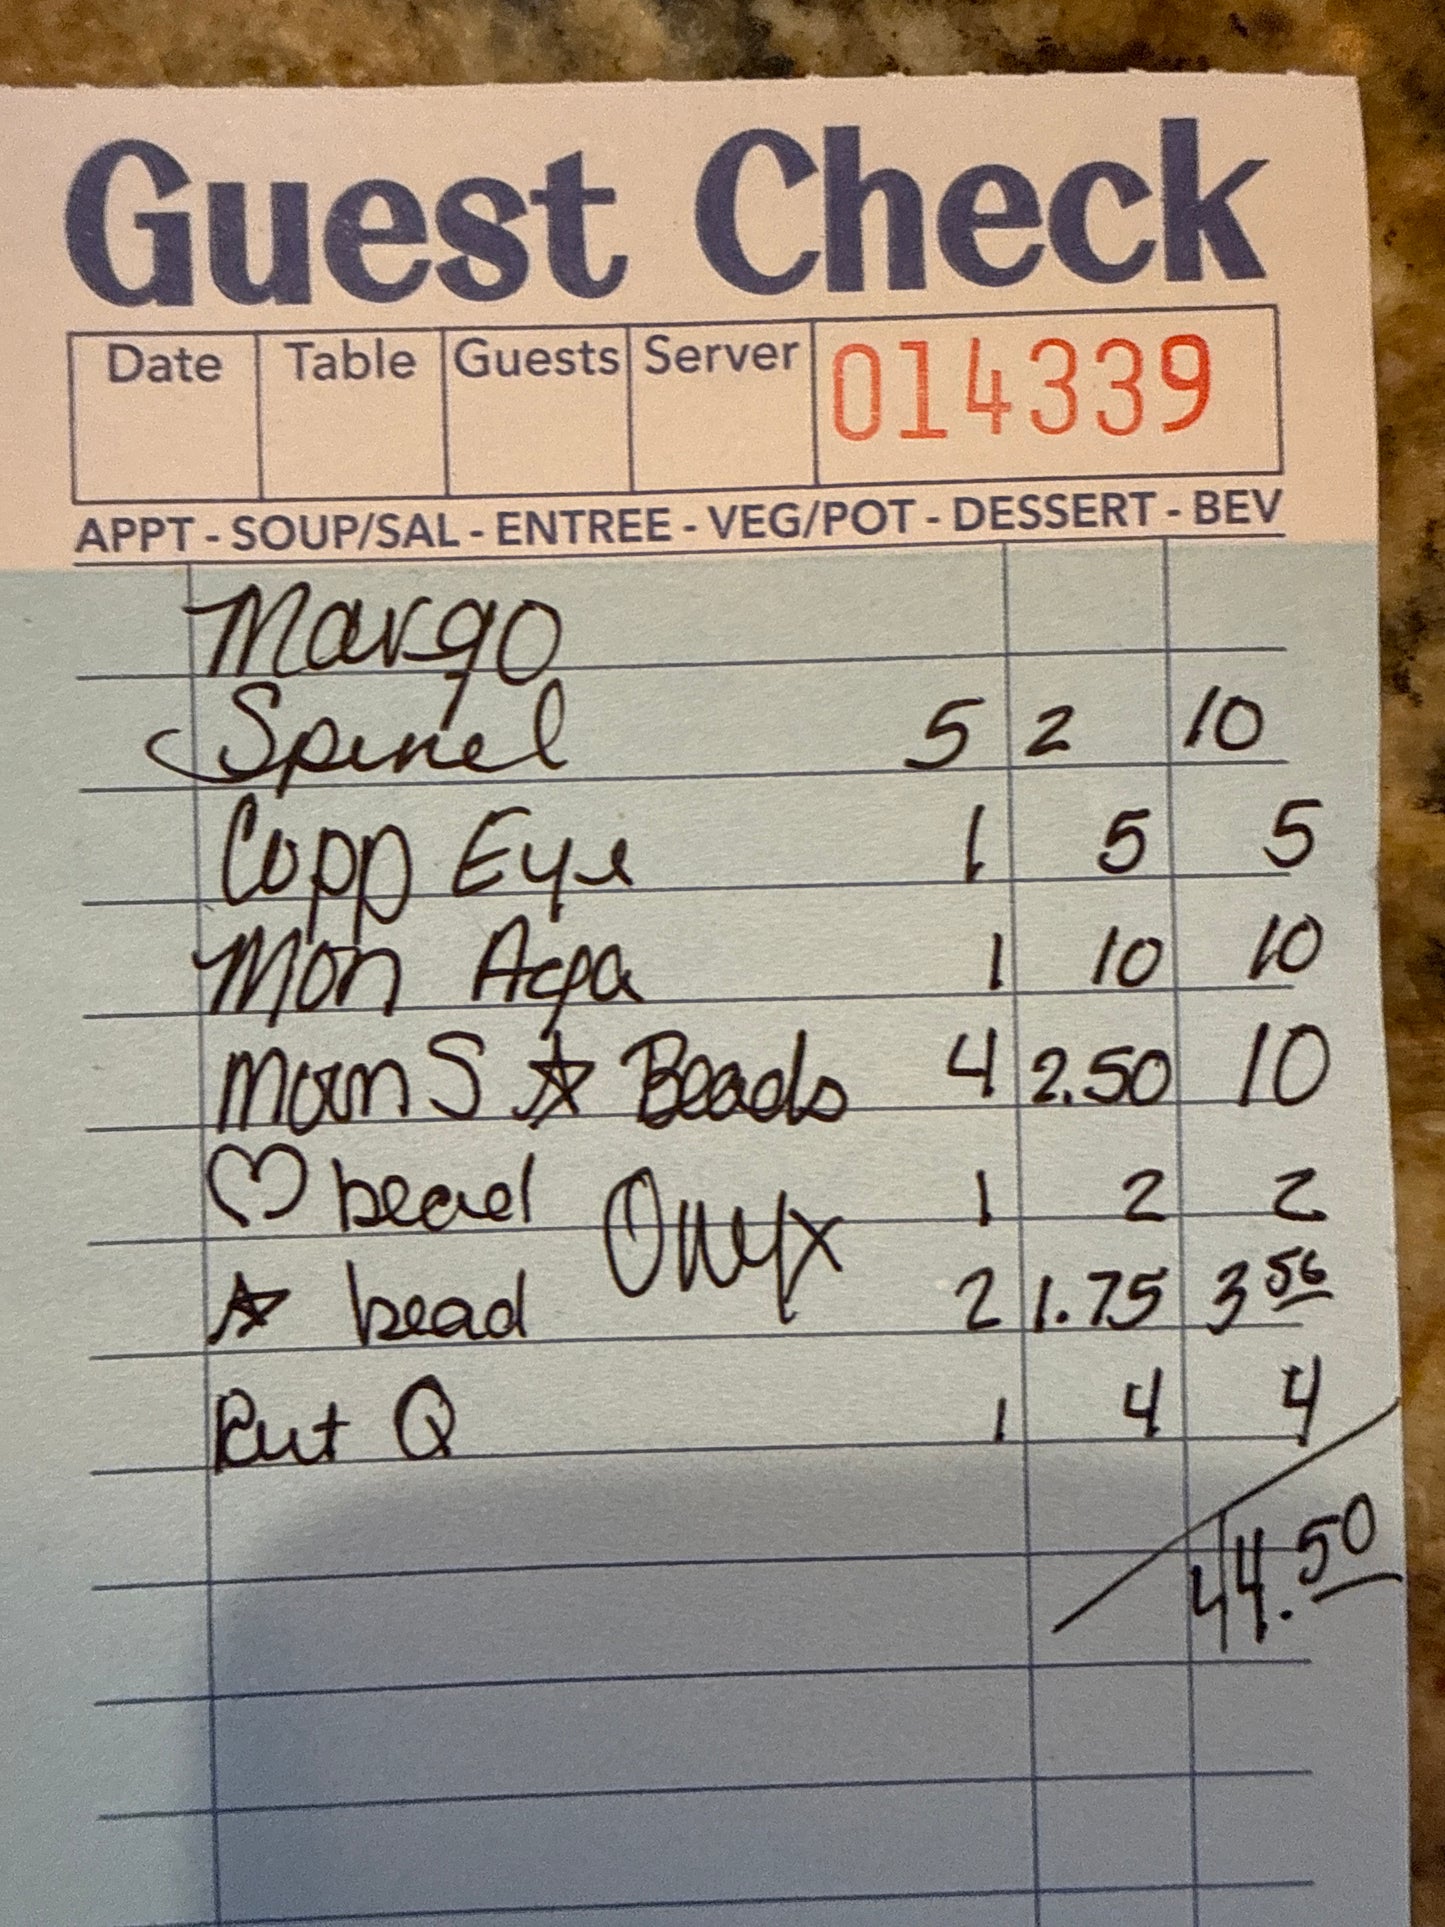 Guest Check
Date Table Guests Server 014339
APPT - SOUP/SAL - ENTREE - VEG/POT - DESSERT - BEV
Margo
Spinel 5 2 10
Copp Eye 1 5 5
Mon Aqa 1 10 10
Moon S ☆ Beads 4 2.50 10
♡ bead Onyx 1 2 2
☆ bead 2 1.75 3 50
Rut Q 1 4 4
44.50